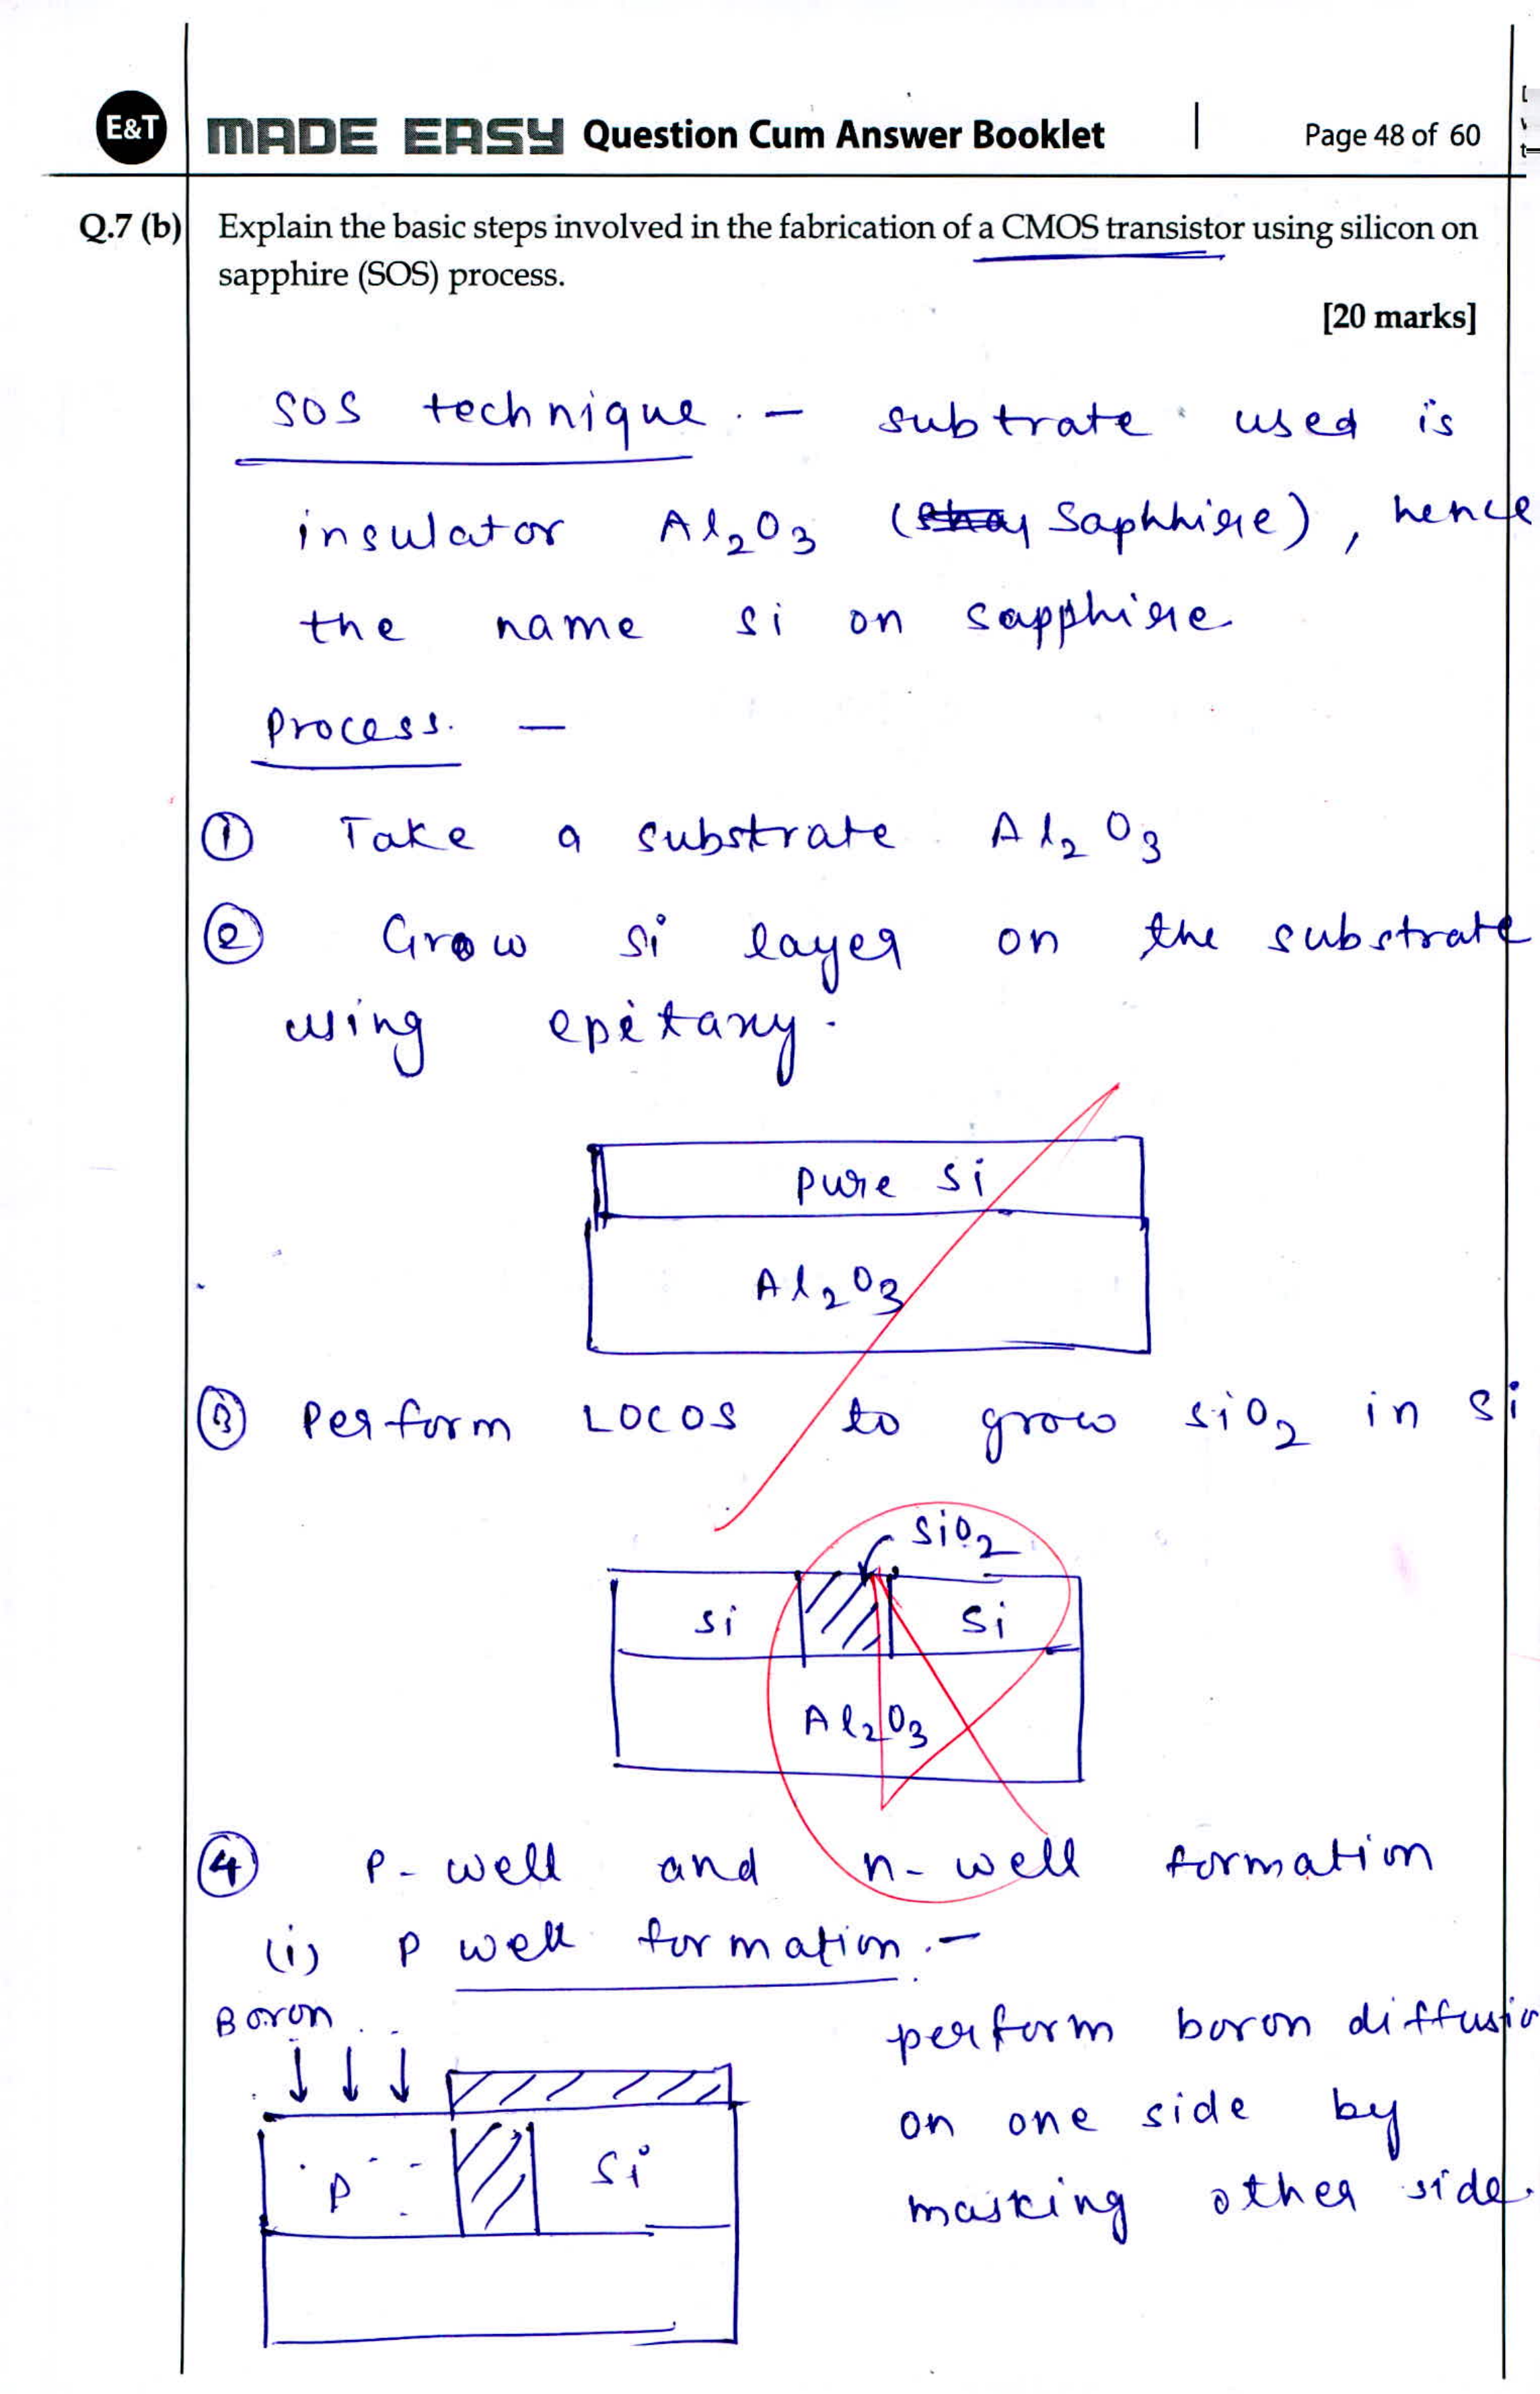 E&T
MADE EASY Question Cum Answer Booklet
Page 48 of 60
Q.7 (b) Explain the basic steps involved in the fabrication of a CMOS transistor using silicon on
sapphire (SOS) process.
[20 marks]
SOS technique. - subtrate used is
insulator Al2O3 (Saphhire), hence
the name Si on sapphire
Process. -
1 Take a substrate Al2O3
2 Grow Si layer on the substrate
using epitaxy.
pure Si
Al2O3
3 Perform LOCOS to grow SiO2 in Si
SiO2
Si
Si
Al2O3
4 P-well and n-well formation
(i) P well formation.-
Boron
perform boron diffusio
on one side by
P
Si
masking other side.